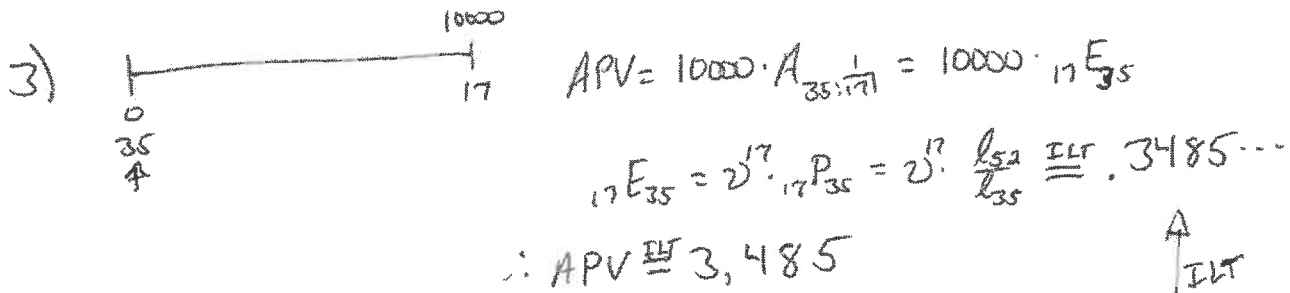 10000
3)
0
17
35
APV = 10000 · A 35:17| 1 = 10000 · 17E35
17E35 = v^17 · 17P35 = v^17 · l52/l35 ILT= .3485...
∴ APV ILT= 3,485
ILT